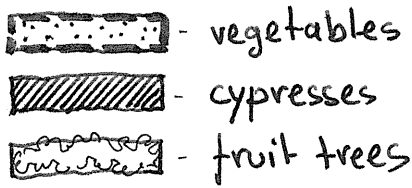 - vegetables
- cypresses
- fruit trees